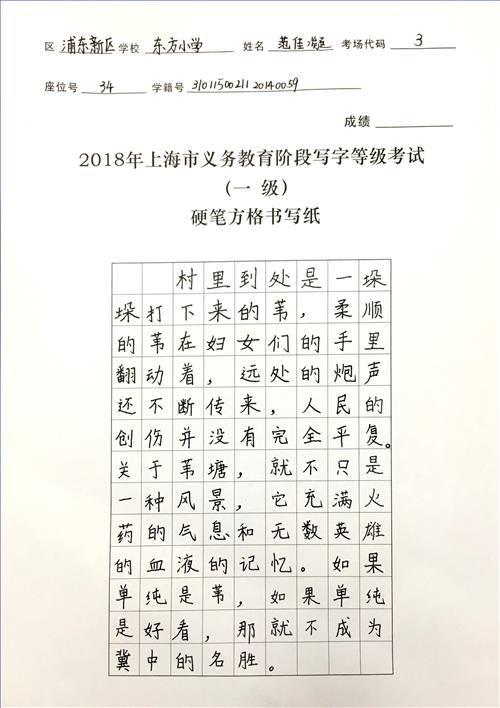 区 浦东新区 学校 东方小学 姓名 范佳 考场代码 3
座位号 34 学籍号 3101150021120140059
成绩
2018年上海市义务教育阶段写字等级考试
（一 级）
硬笔方格书写纸
村里到处是一垛
垛打下来的苇，柔顺
的苇在妇女们的手里
翻动着，远处的炮声
还不断传来，人民的
创伤并没有完全平复。
关于苇塘，就不只是
一种风景，它充满火
药的气息和无数英雄
的血液的记忆。如果
单纯是苇，如果单纯
是好看，那就不成为
冀中的名胜。